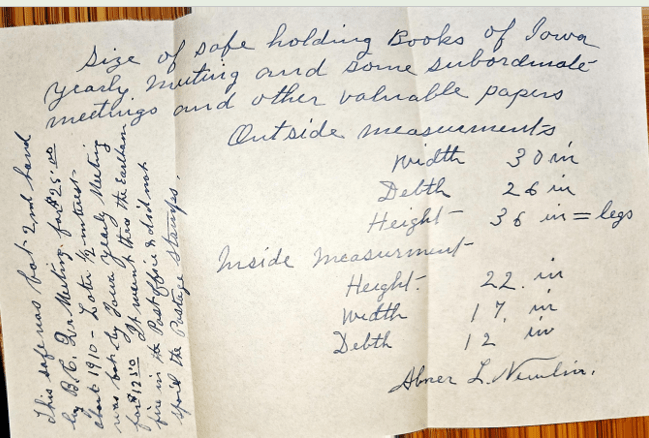 Size of safe holding Books of Iowa
Yearly Meeting and some subordinate
meetings and other valuable papers
Outside measurements
Width 30 in
Debth 26 in
Height 36 in = legs
Inside measurment
Height. 22. in
Width 17. in
Debth 12 in
Abner L. Newlin.
This safe was bot 2nd hand
by B. C. Qr Meeting. for $25.00
about 1910 - Later 1/2 interest
was bot by Iowa Yearly Meeting
for $12.50 It went thru the Earlham
fire in the Post office & did not
spoil the Postage Stamps.